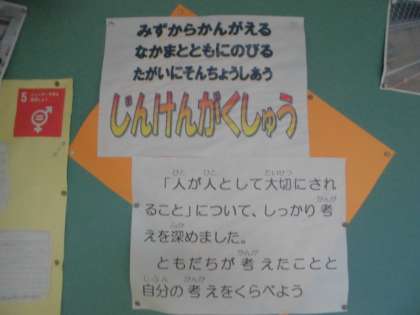 みずからかんがえる
なかまとともにのびる
たがいにそんちょうしあう
じんけんがくしゅう
「人が人として大切にされ
ること」について、しっかり考
えを深めました。
ともだちが考えたことと
自分の考えをくらべよう
5 ジェンダー平等を
実現しよう